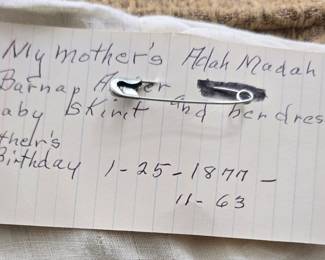 My mother's Adah Madah
Barnap
aby Skirt and her dres
ther's
Birthday 1-25-1877-
11-63